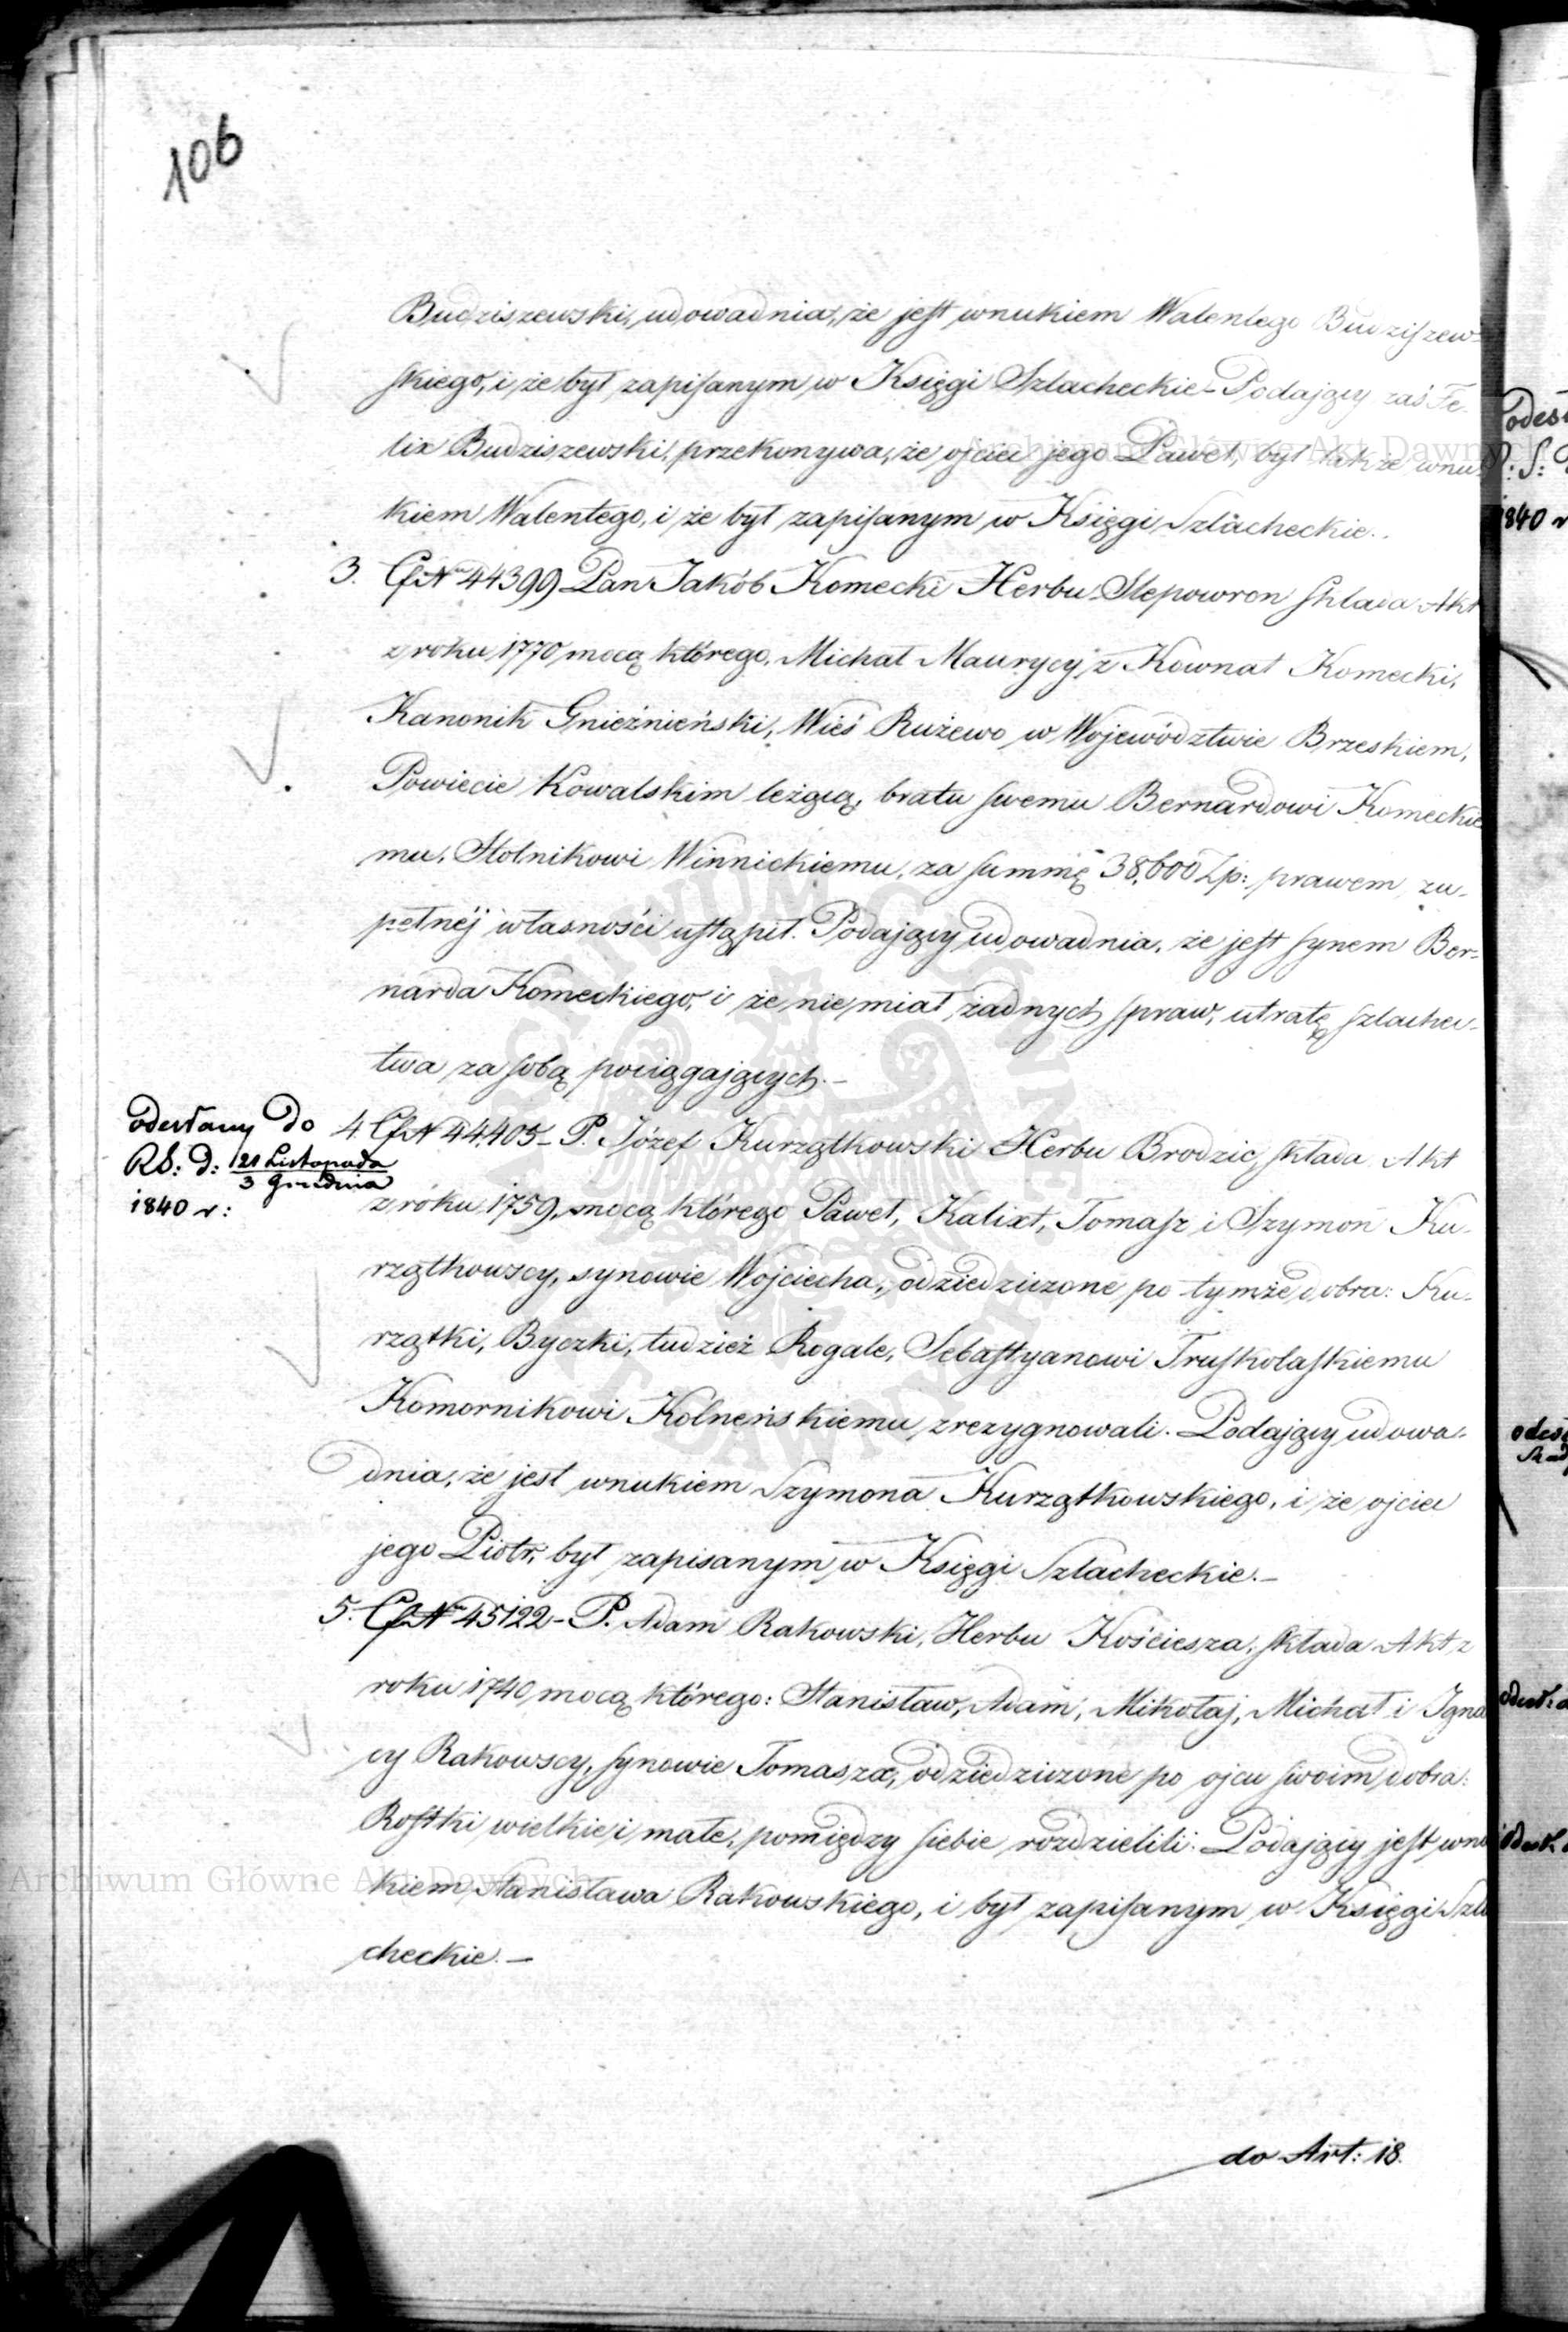 106
Budziszewski, udowadnia, że jest wnukiem Walentego Budziszew-
skiego, i że był zapisanym w Księgi Szlacheckie - Podający zaś Fe-
lix Budziszewski, przekonywa, że ojciec jego Paweł, był także wnu-
kiem Walentego, i że był zapisanym w Księgi Szlacheckie.
3. N 44399 Pan Jakób Komecki Herbu Slepowron składa Akt
z roku 1770 mocą którego, Michał Maurycy z Kownat Komecki,
Kanonik Gnieźnieński, Wieś Rużewo w Województwie Brzeskiem,
Powiecie Kowalskim leżącą, bratu swemu Bernardowi Komeckie
mu, Stolnikowi Winnickiemu, za summę 38,600 Zp: prawem zu-
pełnéj własności ustąpił. Podający udowadnia, że jest synem Ber-
narda Komeckiego, i że nie miał żadnych spraw, utratę szlachec-
twa za sobą pociągających. -
odesłany do
RS: d: 21 Listopada
3 Grudnia
1840 r:
4. N 44,405 - P. Józef Kurzątkowski Herbu Brodzic, składa Akt
z roku 1759, mocą którego Paweł, Kalixt, Tomasz i Szymon Ku-
rzątkowscy, synowie Wojciecha, odziedziczone po tymże dobra: Ku-
rzątki, Byczki, tudzież Rogale, Sebastyanowi Truskolaskiemu
Komornikowi Kolneńskiemu zrezygnowali. Podający udowa-
dnia, że jest wnukiem Szymona Kurzątkowskiego, i że ojciec
jego Piotr, był zapisanym w Księgi Szlacheckie. -
5. N 45122 - P. Adam Rakowski, Herbu Kościesza, składa Akt z
roku 1740 mocą którego: Stanisław, Adam, Mikołaj, Michał i Igna
cy Rakowscy, synowie Tomasza, odziedziczone po ojcu swoim dobra:
Rostki wielkie i małe, pomiędzy siebie rozdzielili. Podający jest wnu
kiem Stanisława Rakowskiego, i był zapisanym w Księgi Szla
checkie. -
do Art: 18.
1840 r
Archiwum Główne Akt Dawnych
Archiwum Główne Akt Dawnych